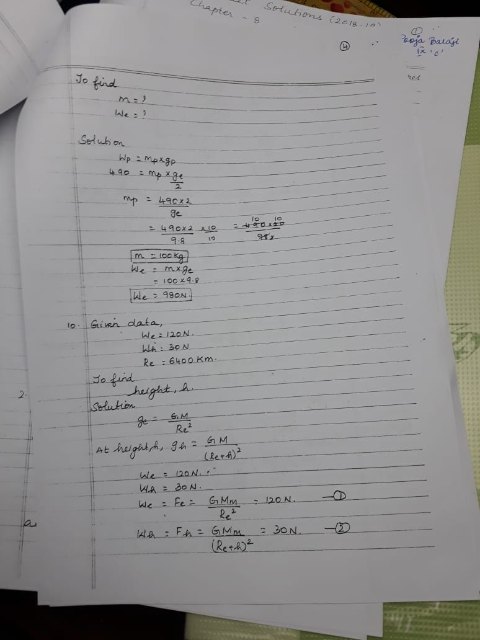 Solutions (2018-19)
Chapter - 8
①
Pooja Balaji
IX 'D'
④
To find
m = ?
We = ?
Solution
Wp = mp×gp
490 = mp × ge/2
mp = 490×2/ge
= 490×2/9.8 × 10/10 = 490×20/98
m = 100kg
We = m×ge
= 100×9.8
We = 980N
10. Given data,
We = 120N.
Wh = 30N
Re = 6400 Km.
To find
height, h.
2.
Solution
ge = GM/Re²
At height, h, gh = GM/(Re+h)²
We = 120N.
Wh = 30N.
We = Fe = GMm/Re² = 120N. —①
Wh = Fh = GMm/(Re+h)² = 30N. —②